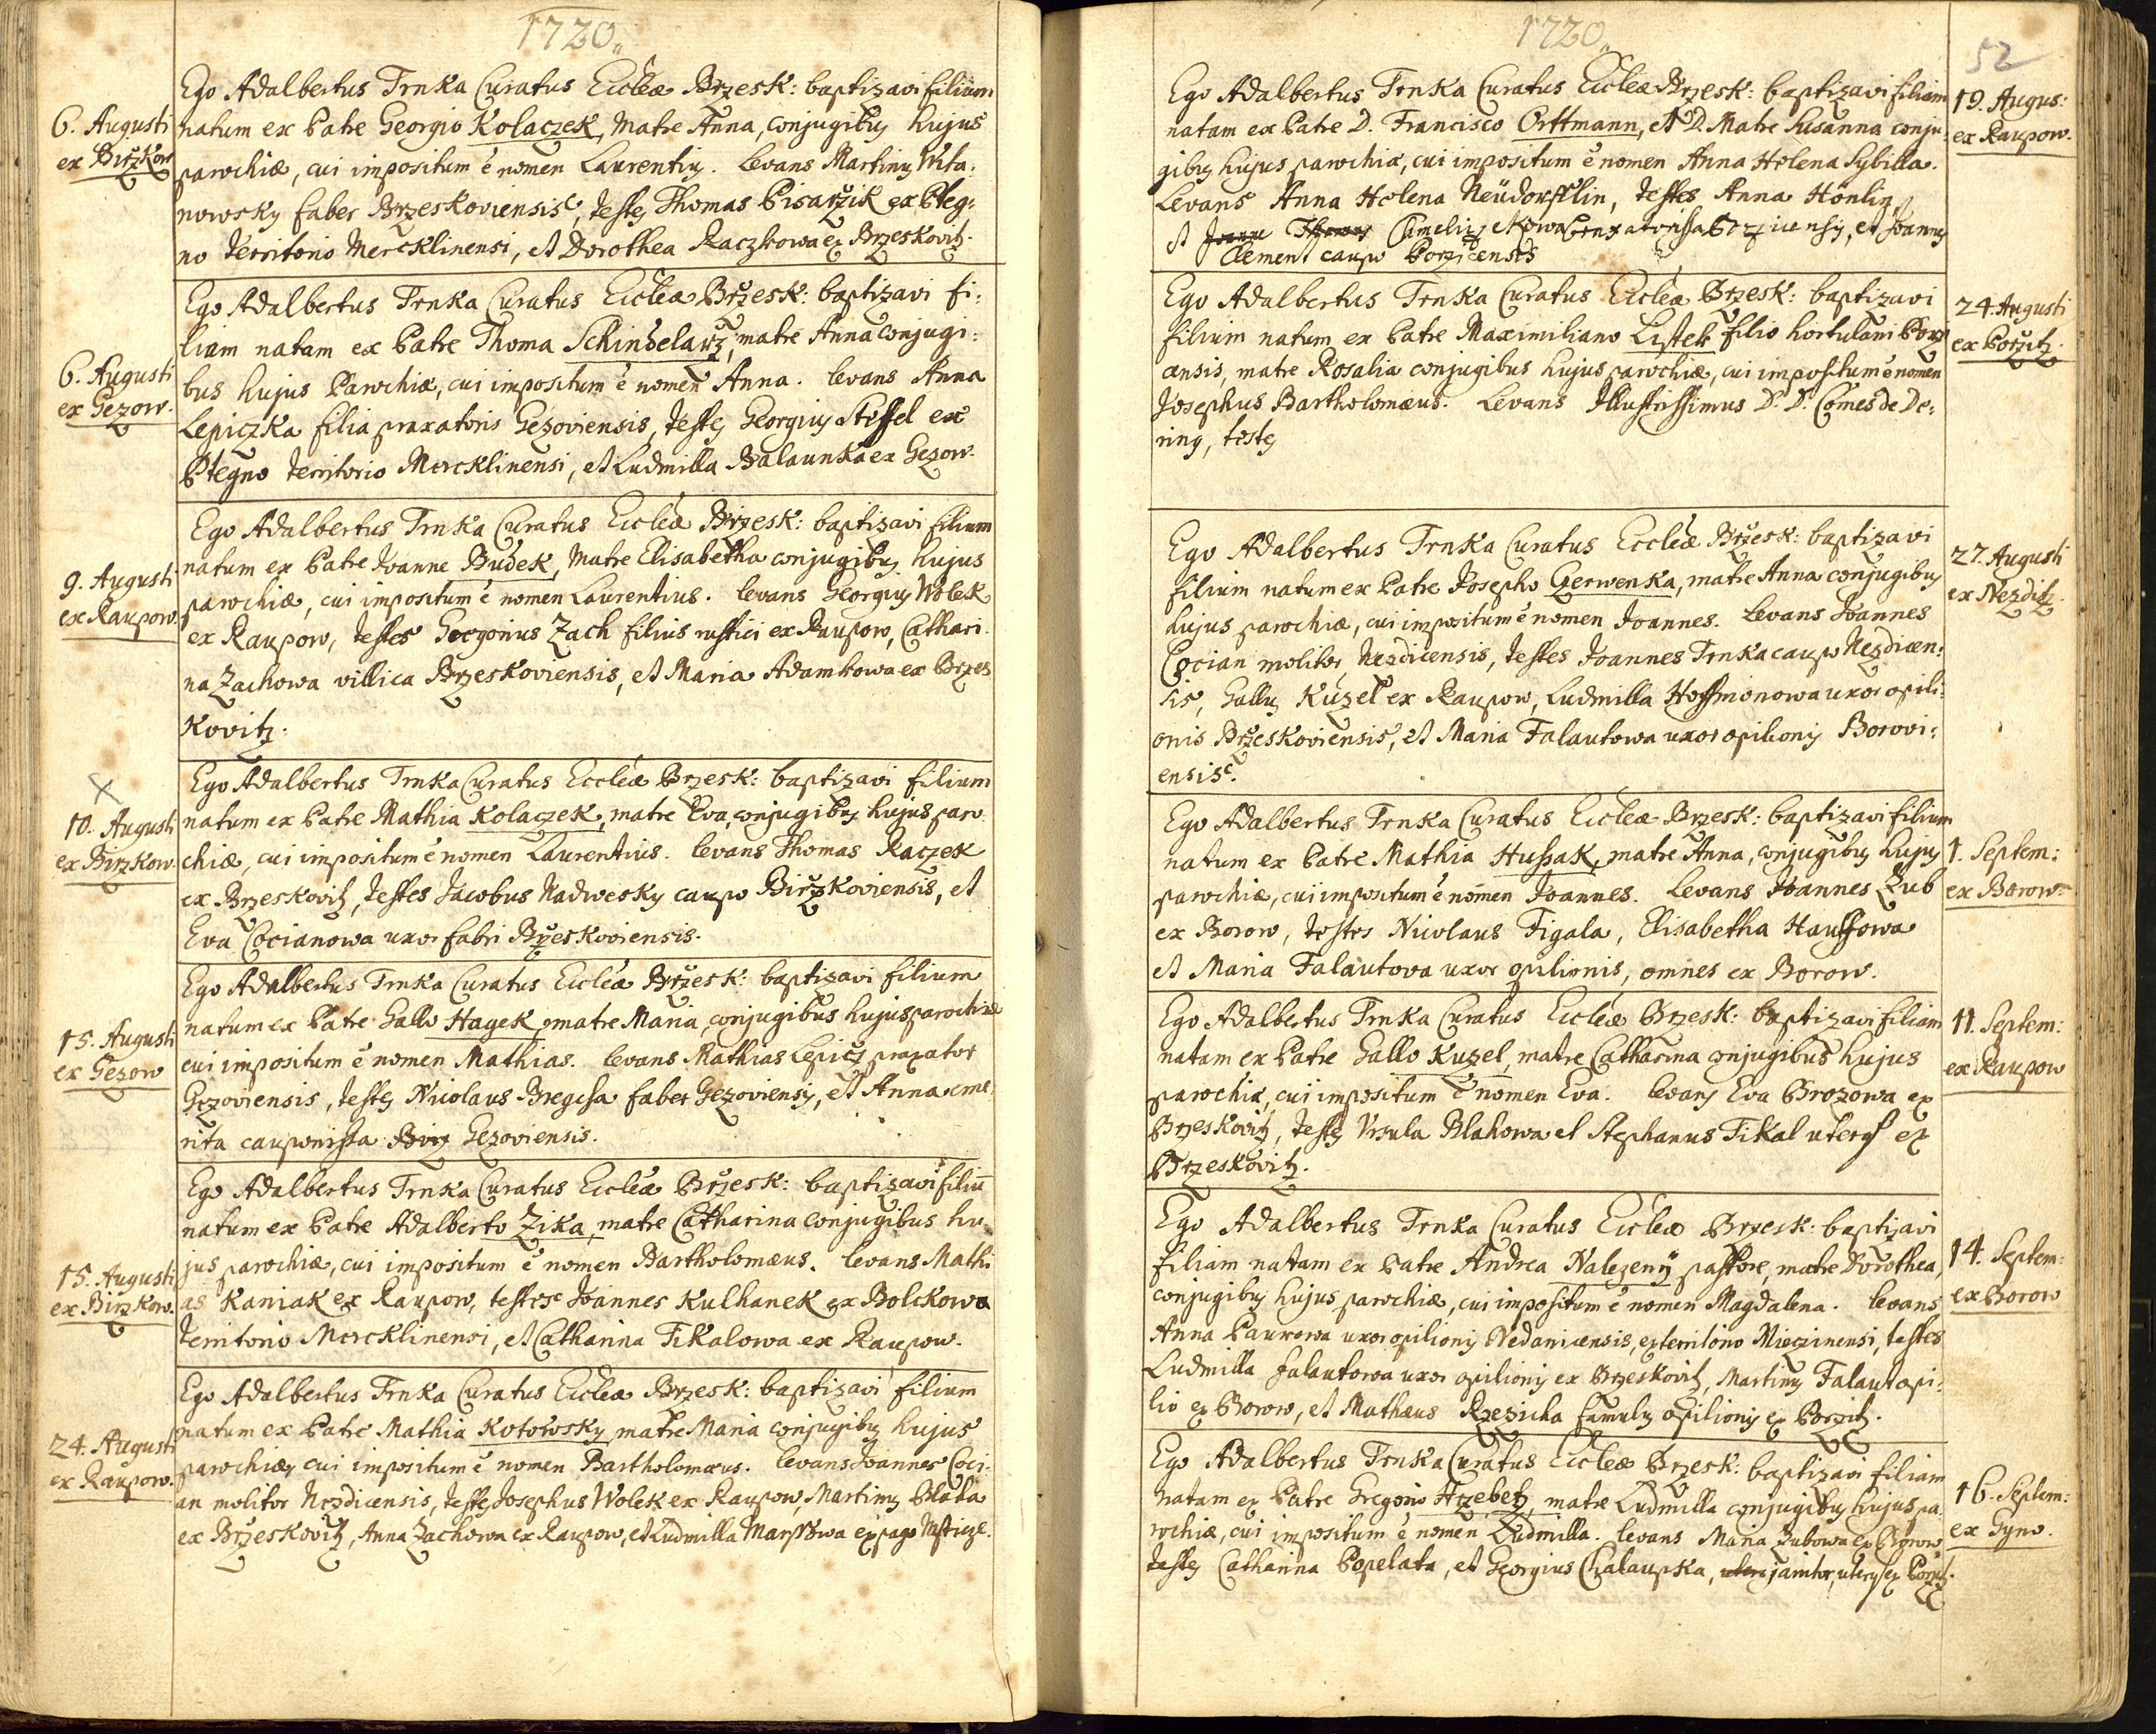 1720
Ego Adalbertus Trnka Curatus Eccleæ Brzesk: baptizavi filium
6. Augusti
natum ex Patre Georgio Kolaczek, Matre Anna, conjugibus hujus
ex Birzkow
parochiæ, cui impositum ē nomen Laurentius. Levans Martinus Wita:
nowsky faber Brzeskoviensis, testes Thomas Pisarzik ex Pteg:
no territorio Mercklinensi, et Dorothea Raczkowa ex Brzeskovitz.
Ego Adalbertus Trnka Curatus Eccleæ Brzesk: baptizavi fi:
liam natam ex Patre Thoma Schindelarz, matre Anna conjugi:
6. Augusti
bus hujus Parochiæ, cui impositum ē nomen Anna. Levans Anna
ex Gezow.
Lepiczka filia praxatoris Gezoviensis, testes Georgius Steffel ex
Ptegno territorio Mercklinensi, et Ludmilla Balaunka ex Gezow.
Ego Adalbertus Trnka Curatus Eccleæ Brzesk: baptizavi filium
natum ex Patre Joanne Budek, Matre Elisabetha conjugibus hujus
9. Augusti
parochiæ, cui impositum ē nomen Laurentius. Levans Georgius Wolek
ex Raupow.
ex Raupow, testes Gorgonius Zach filius rustici ex Raupow, Cathari:
na Zachowa villica Brzeskoviensis, et Maria Adamkowa ex Brzes
kovitz.
Ego Adalbertus Trnka Curatus Eccleæ Brzesk: baptizavi filium
10. Augusti
natum ex Patre Mathia Kolaczek, matre Eva, conjugibus hujus paro
ex Birzkow.
chiæ, cui impositum ē nomen Laurentius. Levans Thomas Raczek
ex Brzeskovitz, testes Jacobus Nadwesky caupo Birzkoviensis, et
Eva Cocianowa uxor fabri Brzeskoviensis.
Ego Adalbertus Trnka Curatus Eccleæ Brzesk: baptizavi filium
natum ex Patre Gallo Hagek, matre Maria, conjugibus hujus parochiæ
15. Augusti
cui impositum ē nomen Mathias. Levans Mathias Lepicz praxator
ex Gezow
Gezoviensis, testes Nicolaus Bregcha faber Gezoviensis, et Anna eme
rita cauponissa Gezoviensis.
Ego Adalbertus Trnka Curatus Eccleæ Brzesk: baptizavi filiū
natum ex Patre Adalberto Zika, matre Catharina conjugibus hu
15. Augusti
jus parochiæ, cui impositum ē nomen Bartholomæus. Levans Mathi
ex Birzkow.
as Kaniak ex Raupow, testes Joannes Kulhanek ex Bolckow
territorio Mercklinensi, et Catharina Tikalowa ex Raupow.
Ego Adalbertus Trnka Curatus Eccleæ Brzesk: baptizavi filium
natum ex Patre Mathia Kotowsky matre Maria conjugibus hujus
24. Augusti
parochiæ, cui impositum ē nomen Bartholomæus. Levans Joannes Coci:
ex Raupow.
an molitor Nezdicensis, testes Josephus Wolek ex Raupow, Martinus Blaha
ex Brzeskovitz, Anna Zachowa ex Raupow, et Ludmilla ex pago
1720
52
Ego Adalbertus Trnka Curatus Eccleæ Brzesk: baptizavi filiam
19. Augus:
natam ex Patre D. Francisco Orttmann, et D. Matre Susanna conju:
ex Raupow.
gibus hujus parochiæ, cui impositum ē nomen Anna Helena Sybilla.
Levans Anna Helena Neüdorfflin, testes Anna Hönlig,
et Borziciensis, et Joannes
Clement caupo Porzicensis
Ego Adalbertus Trnka Curatus Eccleæ Brzesk: baptizavi
24. Augusti
filium natum ex Patre Maximiliano Listek filio hortulani Porzi
ex Porzitz.
censis, matre Rosalia conjugibus hujus parochiæ, cui impositum ē nomen
Josephus Bartholomæus. Levans Illustrissimus D. D. Comes de De:
ring, testes
Ego Adalbertus Trnka Curatus Eccleæ Brzesk: baptizavi
27. Augusti
filium natum ex Patre Josepho Czerwenka, matre Anna conjugibus
ex Nezditz.
hujus parochiæ, cui impositum ē nomen Joannes. Levans Joannes
Cocian molitor Nezdicensis, testes Joannes Trnka caupo Nezdicen:
sis, Gallus Kuzel ex Raupow, Ludmilla Hoffmonowa uxor opili:
onis Brzeskoviensis, et Maria Falautowa uxor opilionis Borovi:
ensis.
Ego Adalbertus Trnka Curatus Eccleæ Brzesk: baptizavi filium
natum ex Patre Mathia Hussak, matre Anna, conjugibus hujus
1. Septem:
parochiæ, cui impositum ē nomen Joannes. Levans Joannes Zub
ex Borow.
ex Borow, testes Nicolaus Figala, Elisabetha Haussowa
et Maria Falautova uxor opilionis, omnes ex Borow.
Ego Adalbertus Trnka Curatus Eccleæ Brzesk: baptizavi filiam
11. Septem:
natam ex Patre Gallo Kuzel, matre Catharina conjugibus hujus
ex Raupow
parochiæ, cui impositum ē nomen Eva. Levans Eva Brozowa ex
Brzeskovitz, testes Ursula Blahowa et Stephanus Tikal uterq ex
Brzeskovitz.
Ego Adalbertus Trnka Curatus Eccleæ Brzesk: baptizavi
filiam natam ex Patre Andrea Nalezený pastore, matre Dorothea,
14. Septem:
conjugibus hujus parochiæ, cui impositum ē nomen Magdalena. Levans
ex Borow
Anna Paurowa uxor opilionis Nedanicensis, ex territorio Mieczinensi, testes
Ludmilla Falautowa uxor opilionis ex Brzeskovitz, Martinus Falaut opi:
lio ex Borow, et Mathæus Rzezicha famulus opilionis ex Porzitz.
Ego Adalbertus Trnka Curatus Eccleæ Brzesk: baptizavi filiam
natam ex Patre Gregorio Hrzebetz, matre Ludmilla conjugibus hujus pa
16. Septem:
rochiæ, cui impositum ē nomen Ludmilla. Levans Maria Zubowa ex Borow
ex Gyno.
testes Catharina Popelata, et Georgius Chalaupka, janitor, uterq ex Porzitz.